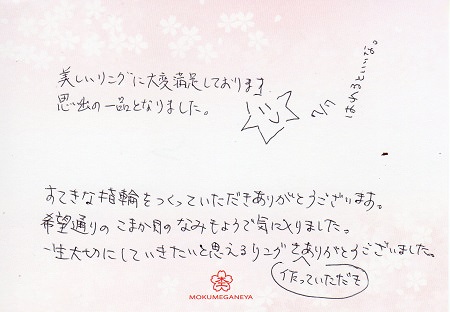 美しいリングに大変満足しております
思い出の一品となりました。
はれるといいな。
すてきな指輪をつくっていただきありがとうございます。
希望通りのこまか目のなみもようで気に入りました。
一生大切にしていきたいと思えるリングをありがとうございました。
作っていただき
MOKUMEGANEYA